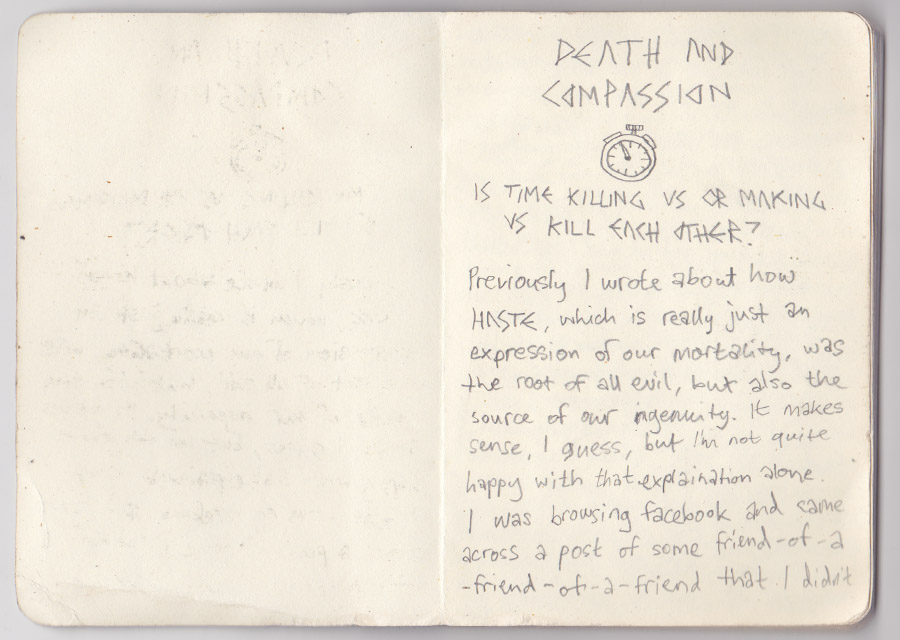 DEATH AND
COMPASSION
IS TIME KILLING VS OR MAKING
VS KILL EACH OTHER?
Previously I wrote about how
HASTE, which is really just an
expression of our mortality, was
the root of all evil, but also the
source of our ingenuity. It makes
sense, I guess, but I'm not quite
happy with that explaination alone.
I was browsing facebook and came
across a post of some friend-of-a
-friend-of-a-friend that I didn't